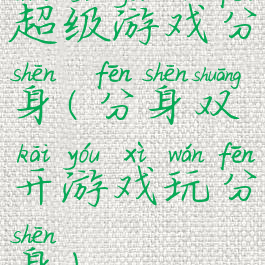 超级游戏分
shēn fēn shēn shuāng
身(分身双
kāi yóu xì wán fēn
开游戏玩分
shēn
身)